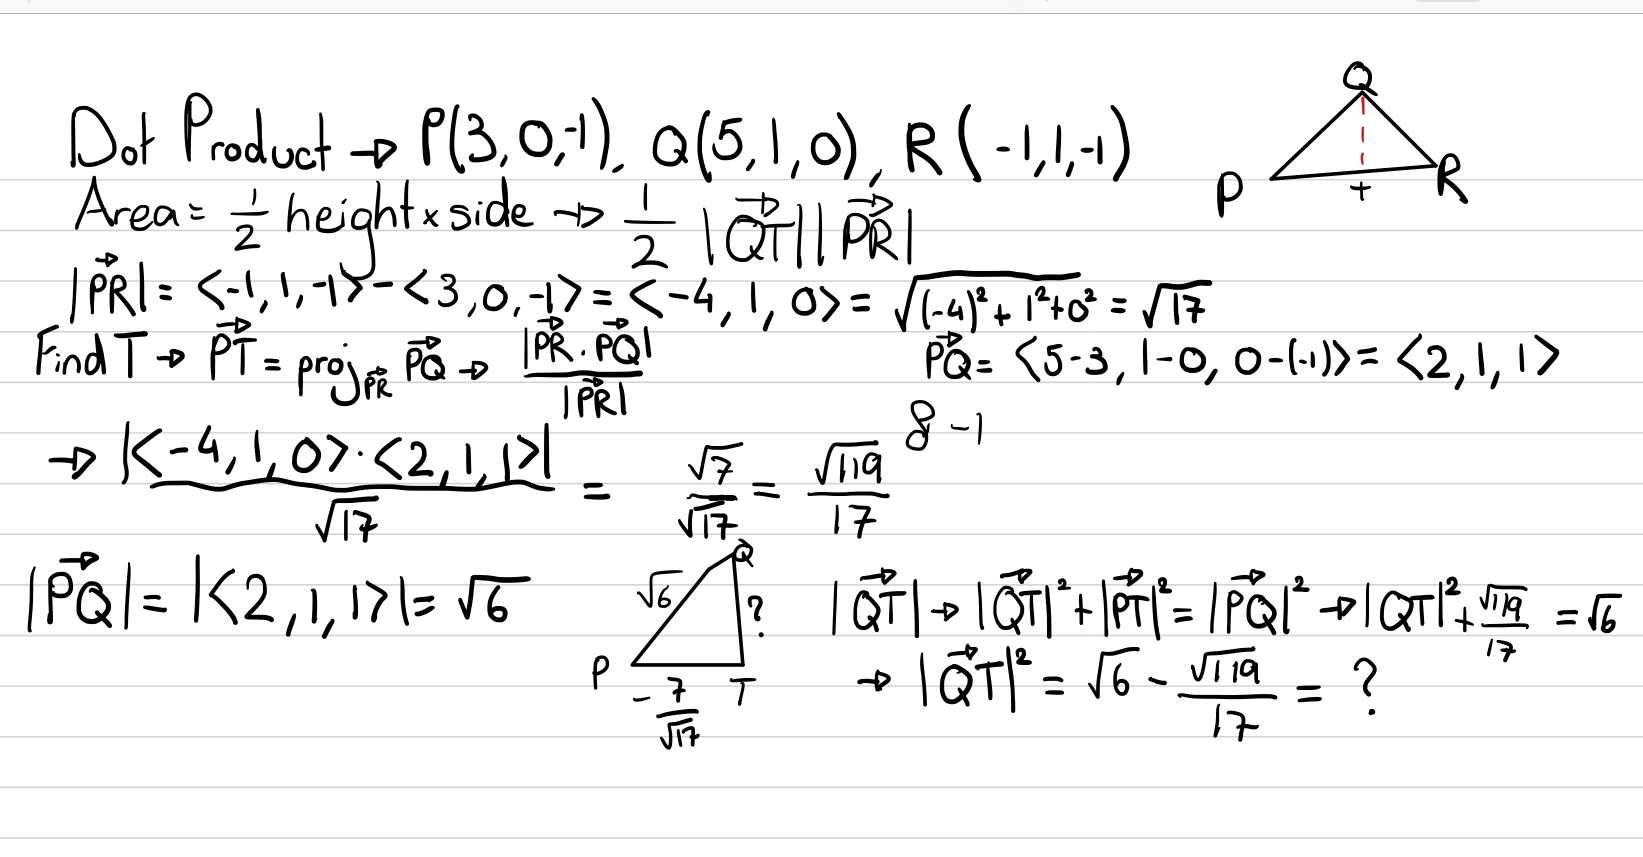 Dot Product → P(3,0,-1), Q(5,1,0), R(-1,1,-1)
Q
P
T
R
Area = 1/2 height × side → 1/2 |QT⃗||PR⃗|
|PR⃗| = <-1,1,-1> - <3,0,-1> = <-4,1,0> = √((-4)²+1²+0²) = √17
Find T → PT⃗ = proj_PR⃗ PQ⃗ → |PR⃗·PQ⃗| / |PR⃗|
PQ⃗ = <5-3, 1-0, 0-(-1)> = <2,1,1>
8-1
→ |<-4,1,0>·<2,1,1>| / √17 = √7/√17 = √119/17
|PQ⃗| = |<2,1,1>| = √6
Q
√6
?
P
-7/√17
T
|QT⃗| → |QT⃗|² + |PT⃗|² = |PQ⃗|² → |QT|² + √119/17 = √6
→ |QT⃗|² = √6 - √119/17 = ?